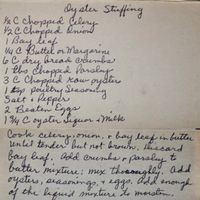 Oyster Stuffing
½ C Chopped Celery
½ C Chopped Onion
1 Bay leaf
¼ C Butter or Margarine
6 C dry bread crumbs
1 tbs Chopped Parsley
3 C Chopped raw oysters
1 tsp Poultry Seasoning
Salt & Pepper
2 Beaten Eggs
1¾ C oyster liquor & Milk
Cook celery, onion, & bay leaf in butter
until tender but not brown. Discard
bay leaf. Add crumbs & parsley to
butter mixture; mix thoroughly. Add
oysters, seasonings, & eggs. Add enough
of the liquid mixture to moisten.